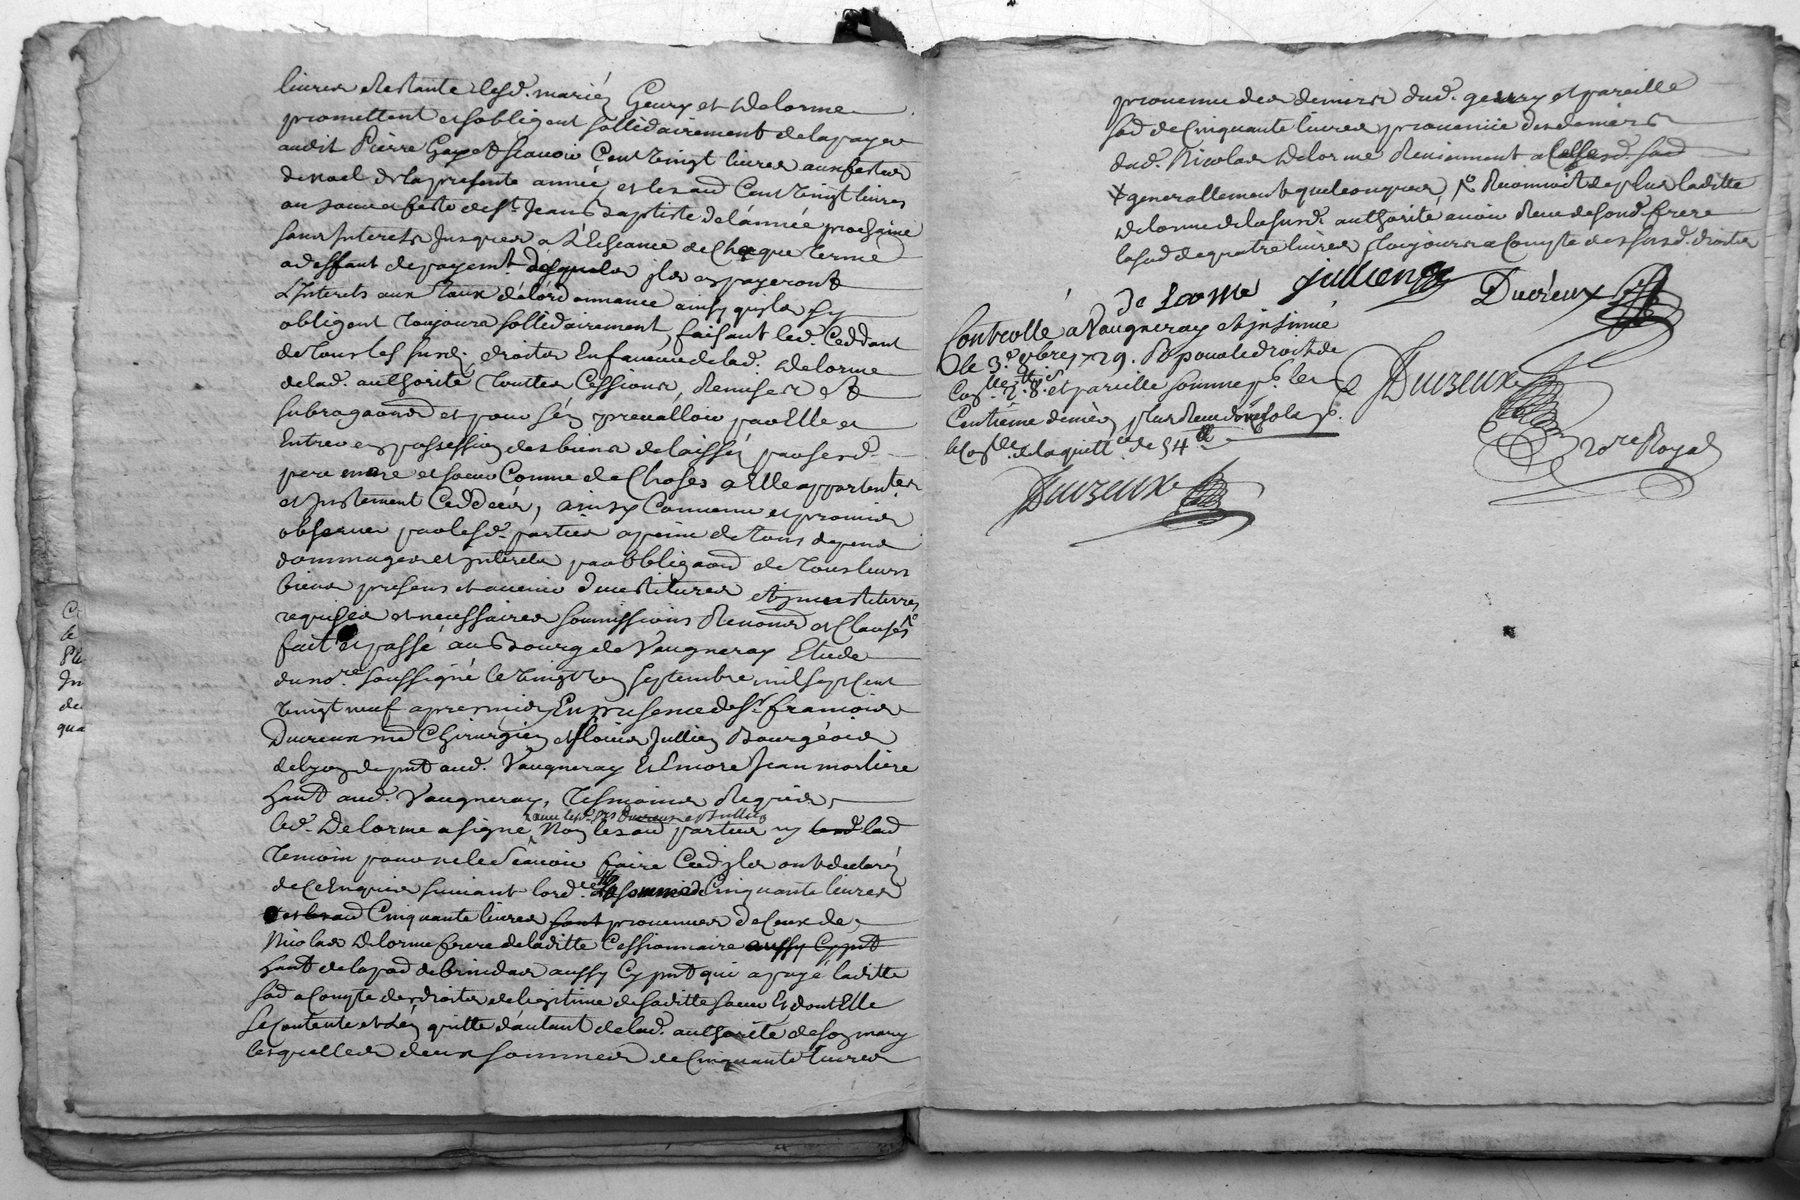 livres restante lesd. mariés Geury et Delorme
promettent et sobligent sollidairement de la payer
audit Pierre Gayet scavoir Cent vingt livres aux festes
de noel de la presente année et les aud Cent vingt livres
au jour et feste de St Jean Baptiste de l'année prochaine
sans Interets jusques a l'Echeance de Chaque terme
a deffaut de payemt. desquels ils en payeront
L'Interets aux taux de l'ordonnance ainsy quils sy
obligent toujours sollidairement, faisant led. Ceddant
de tous les susd. droits En faveur de lad. Delorme
de lad. authorité touttes Cessions, Remises et
subrogaons et pour s'en prevalloir par Elle et
Entrer en possession des biens delaissés par sesd.
pere mere et soeur Comme de Choses a Elle appartenantes
et justement Ceddées, ainsy Convenu et promis
observer par lesd. parties a peine de tous depens
dommages et interets par obbligaon de tous leurs
biens presens et avenir
requises et necessaires soumissions Renonons et Clauses
fait et passé au Bourg de Vaugneray Etude
du nore soussigné le vingt septembre mil sept Cent
vingt neuf apres midy En presence de Sr. francois
Ducreux me Chirurgien et Sr louis Jullien Bourgeois
de Lyon de pnt aud. Vaugneray et Encore Jean morliere
hant aud. Vaugneray, tesmoins Requis,
avec lesd. Srs Ducreux et Jullien
led. Delorme a signé, Non les aud parties ny led
temoin pour ne le scavoir faire Ced ils ont declaré
de ce Enquis suivant lordce la somme de Cinquante livres
et les aud Cinquante livres sont provenues de Ceux de
Nicolas Delorme frere de laditte Cessionnaire aussy Cy pnt
hant de la pad de brindas aussy Cy pnt qui a payé laditte
sod a Compte des droits de legitime de saditte soeur Et dont Elle
se Contente et l'en quitte d'autant de lad. authorité de son mary
lesquelles deux sommes de Cinquante livres
provenue des deniers dud. geury et pareille
sod de Cinquante livres provenüe des deniers
dud. Nicolas Delorme Reviennent a Celle
generallement quelconques, Reconnoit de plus laditte
Delorme de la susd. authorité avoir Receu de sond. frere
la sod de quatre livres toujours a Compte des susd. droits
De Lorme jullien Ducreux
Controllé a Vaugneray et insinué
le 3e 8bre 1729. R pour le droit de
et pareille somme pr les
Centieme denier plus Receu
le Conlle de la quittce de 54 ll
Duvzeux
Duvzeux
nore Royal